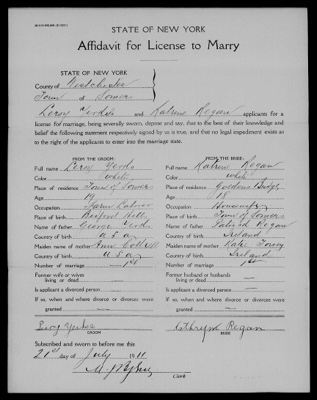 STATE OF NEW YORK
Affidavit for License to Marry
STATE OF NEW YORK
County of Westchester
Town of Somers
Leroy Yerks and Katrine Regan applicants for a
license for marriage, being severally sworn, depose and say, that to the best of their knowledge and
belief the following statement respectively signed by us is true, and that no legal impediment exists as
to the right of the applicants to enter into the marriage state.
FROM THE GROOM:
Full name Leroy Yerks
Color white
Place of residence Town of Somers
Age 19
Occupation Farm Laborer
Place of birth Bedford Hills
Name of father George Yerks
Country of birth U S a
Maiden name of mother
Country of birth U S a
Number of marriage 1st
Former wife or wives
living or dead
Is applicant a divorced person
If so, when and where divorce or divorces were
granted
Leroy Yerks
GROOM
FROM THE BRIDE:
Full name Katrine Regan
Color white
Place of residence Goldens Bridge
Age 18
Occupation Housewife
Place of birth Town of Somers
Name of father Patrick Regan
Country of birth Ireland
Maiden name of mother Kate
Country of birth Ireland
Number of marriage 1st
Former husband or husbands
living or dead
Is applicant a divorced person
If so, when and where divorce or divorces were
granted
Cathryn Regan
BRIDE
Subscribed and sworn to before me this
21st day of July 1911
Clerk